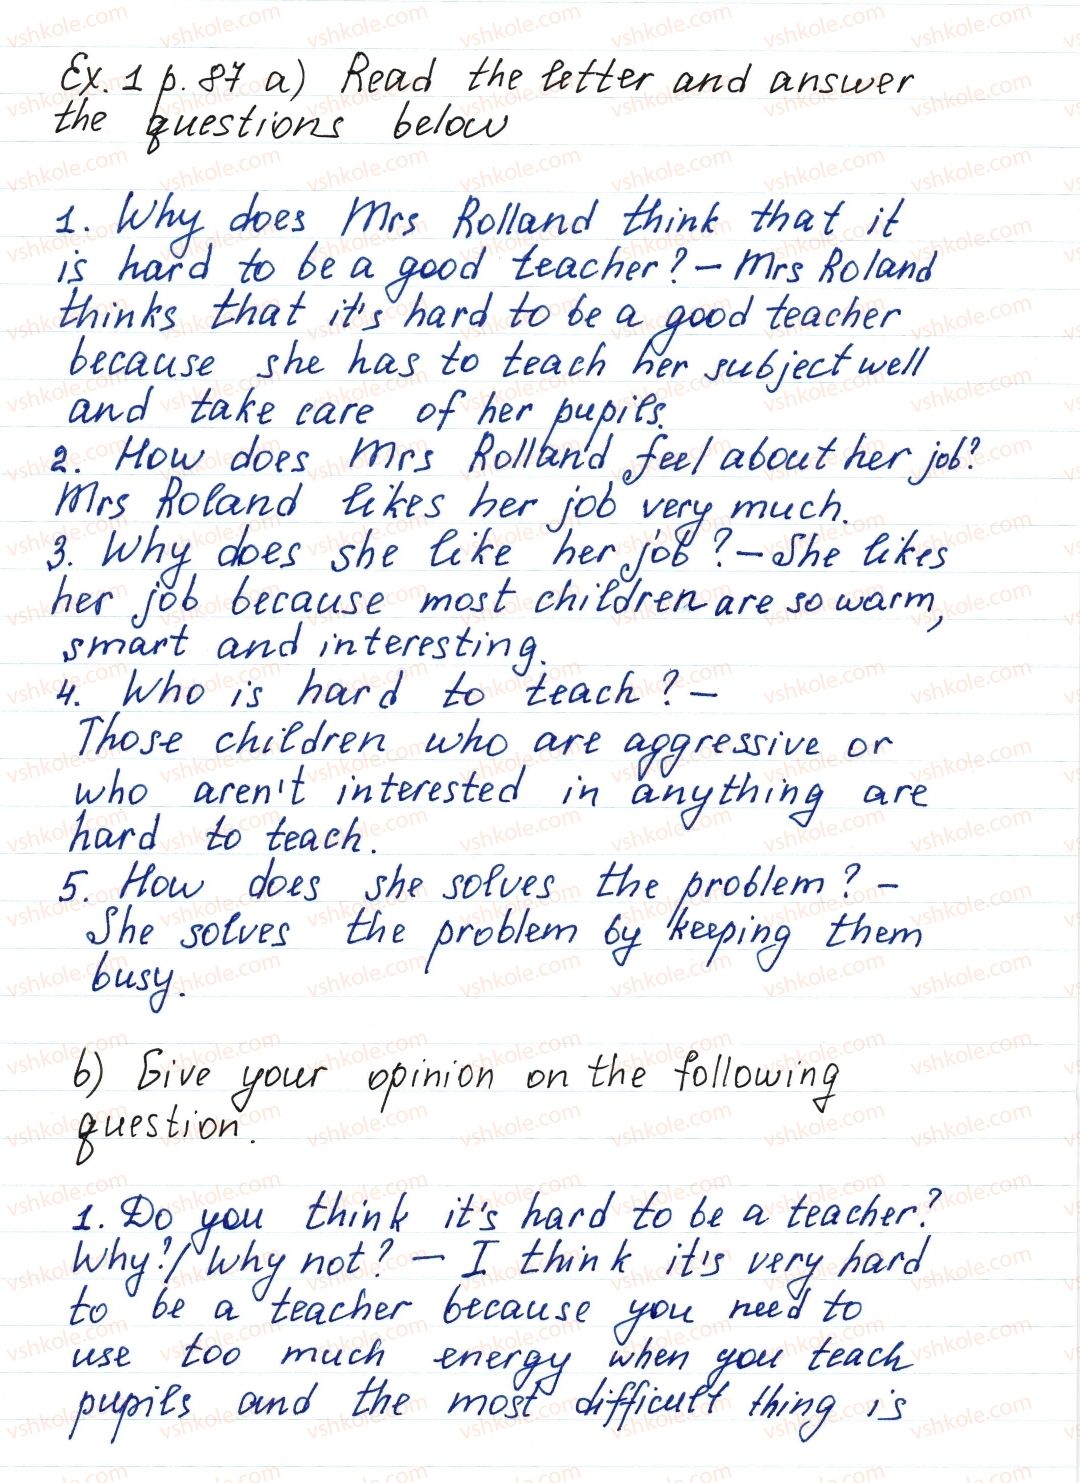 Ex. 1 p. 87 a) Read the letter and answer
the questions below
1. Why does Mrs Rolland think that it
is hard to be a good teacher? – Mrs Roland
thinks that it's hard to be a good teacher
because she has to teach her subject well
and take care of her pupils.
2. How does Mrs Rolland feel about her job?
Mrs Roland likes her job very much.
3. Why does she like her job? – She likes
her job because most children are so warm,
smart and interesting.
4. Who is hard to teach? –
Those children who are aggressive or
who aren't interested in anything are
hard to teach.
5. How does she solves the problem? –
She solves the problem by keeping them
busy.
b) Give your opinion on the following
question.
1. Do you think it's hard to be a teacher?
Why?/Why not? – I think it's very hard
to be a teacher because you need to
use too much energy when you teach
pupils and the most difficult thing is